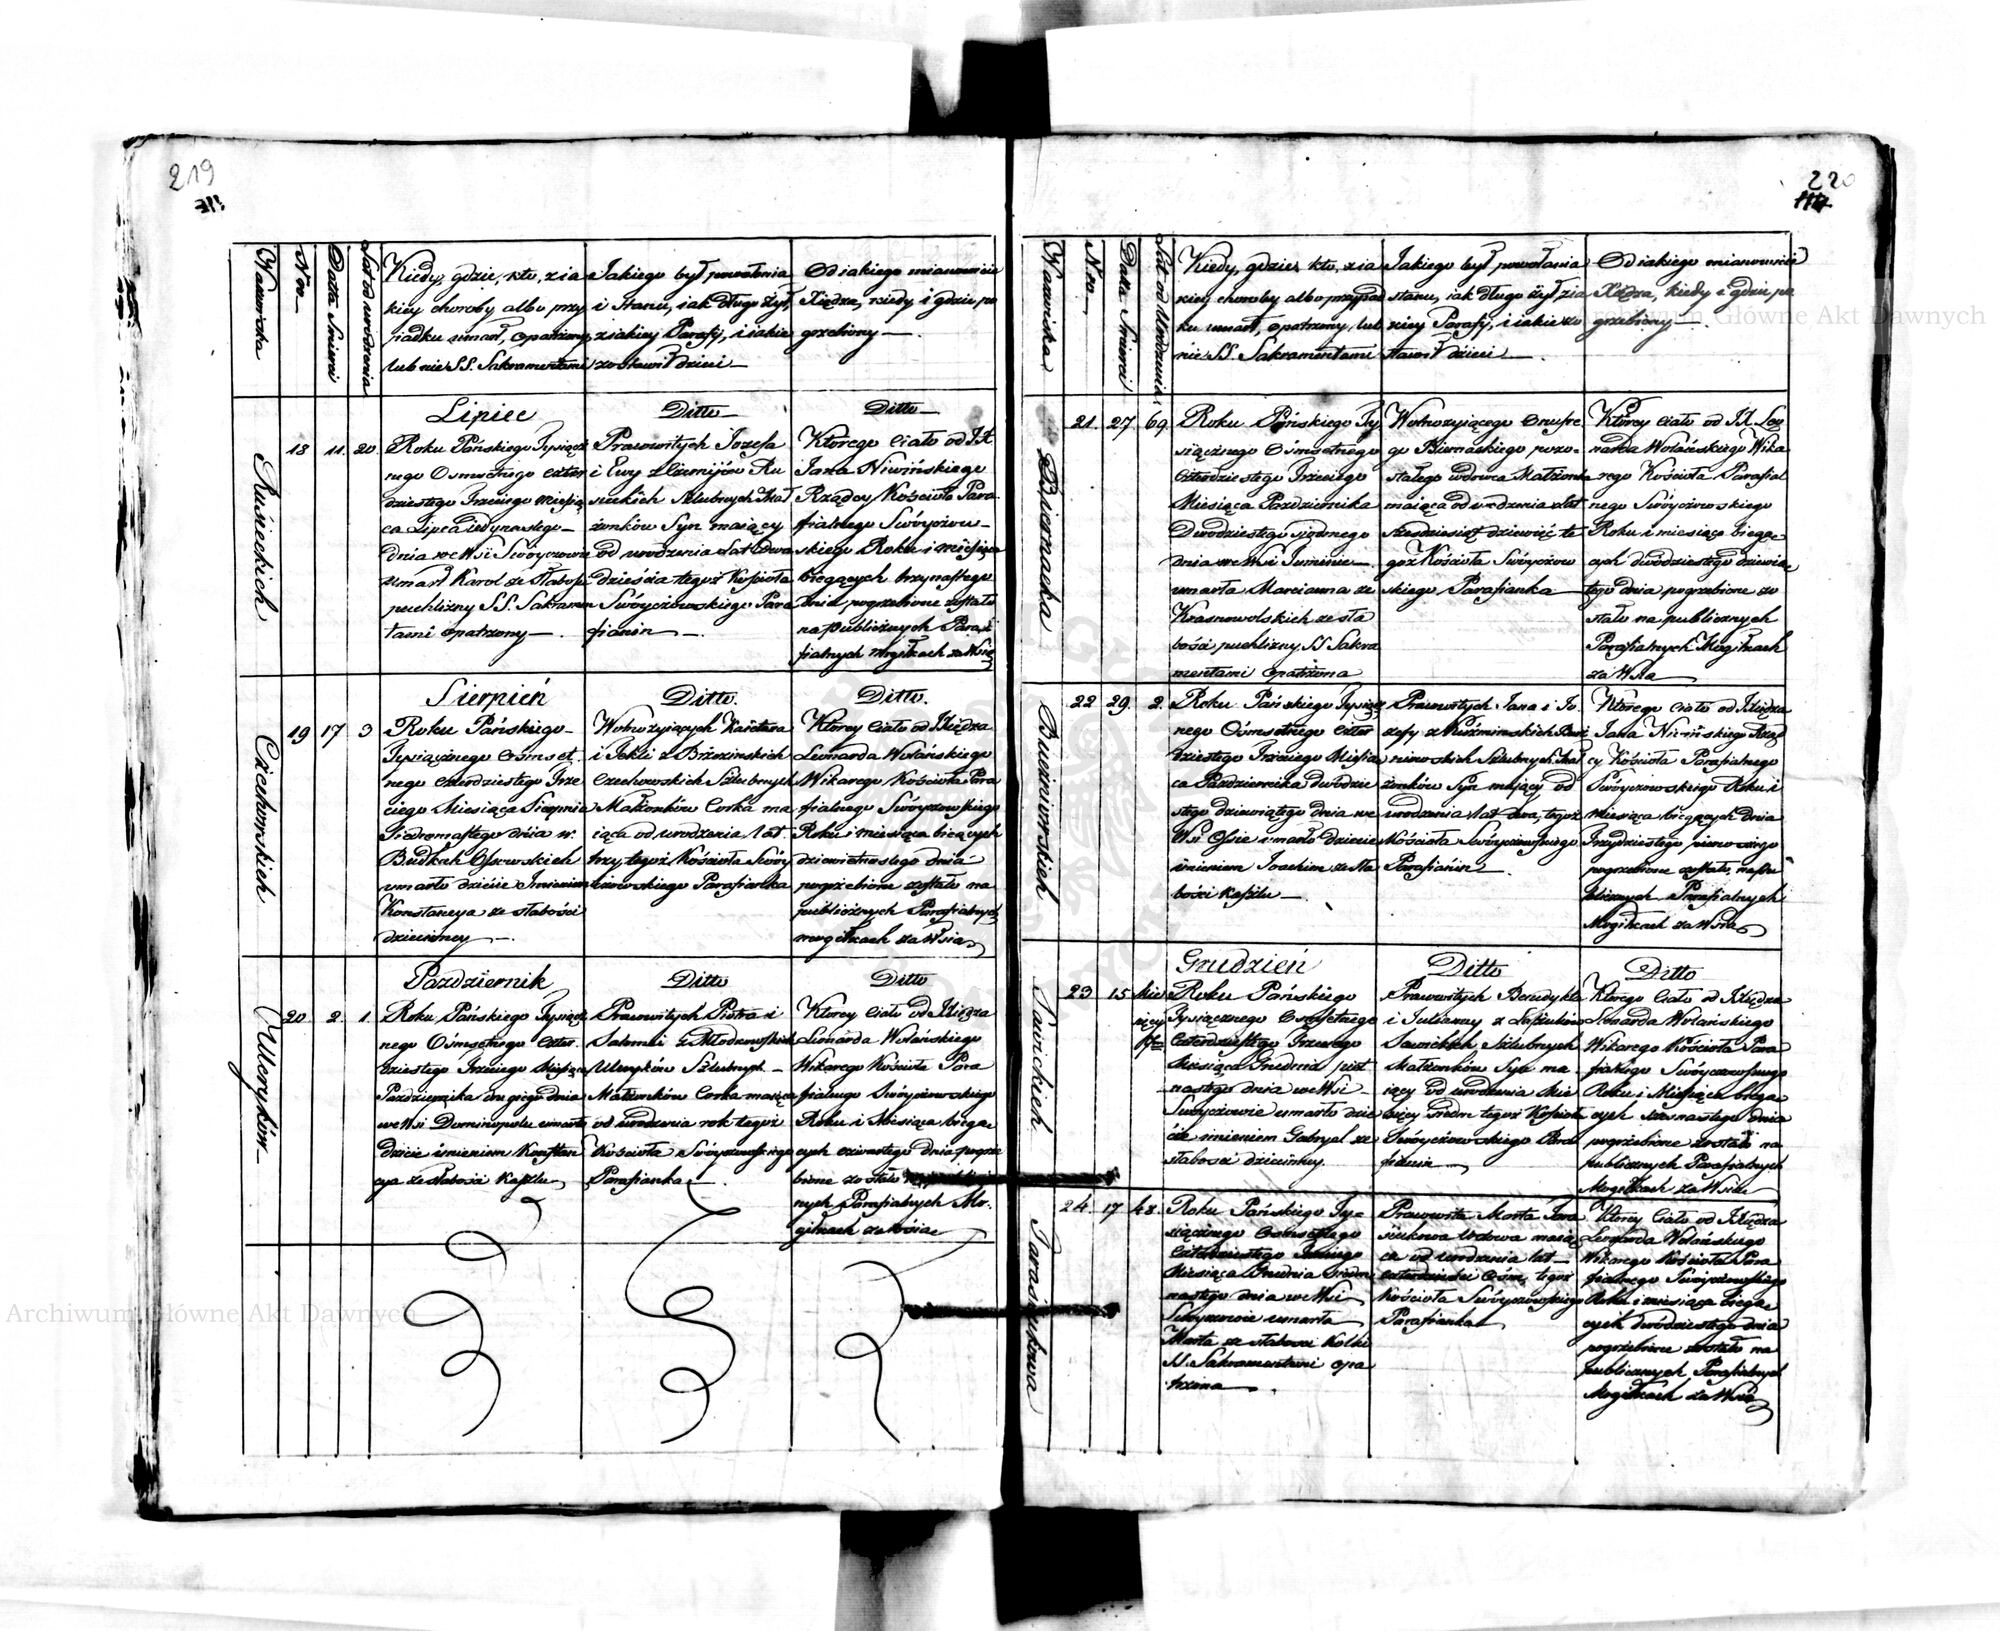 219
220
Nazwiska
Nro
Datta Śmierci
Lat od urodzenia
Kiedy, gdzie, kto, z ia
kiey choroby albo przy
padku umarł, opatrzony
lub nie SS. Sakramentami
Jakiego był powołania
i stanu, iak długo żył,
z iakiey Parafij, i iakie
zostawił dzieci
Od iakiego mianowicie
Xiędza, kiedy i gdzie po
grzebiony
Rusieckich
18
11
20
Lipiec
Roku Pańskiego Tysiącz
nego Osmsetnego czter
dziestego Trzeciego Miesią
ca Lipca iedynastego
dnia we Wsi Swóyczowie
umarł Karol ze słabości
puchliny SS. Sakramen
tami opatrzony
Ditto
Prawowitych Jozefa
i Ewy z Ru
sieckich Szlubnych Mał
żonków Syn maiący
od urodzenia Lat dwa
dzieścia tegoż Kościoła
Swóyczowskiego Para
fianin
Ditto
Ktorego Ciało od JX
Jana Niwińskiego
Rządcy Kościoła Para
fialnego Swóyczow
skiego Roku i miesiąca
bieżących trzynastego
dnia pogrzebione zostało
na publicznych Para
fialnych mogiłkach za Wsią
Czechowskich
19
17
3
Sierpień
Roku Pańskiego
Tysiącznego Osmset
nego czterdziestego Trze
ciego Miesiąca Sierpnia
Siedemnastego dnia w
Budkach Ossowskich
umarło dziecie Imieniem
Konstancya ze słabości
dziecinney
Ditto
Wolnożyiących Kaietana
i Tekli z Brzezinskich
Czechowskich Szlubnych
Małżonków Corka ma
iąca od urodzenia lat
trzy, tegoż Kościoła Swóy
czowskiego Parafianka
Ditto
Ktorey Ciało od Xiędza
Leonarda Wolańskiego
Wikarego Kościoła Para
fialnego Swóyczowskiego
Roku i miesiąca bieżących
dziewietnastego dnia
pogrzebione zostało na
publicznych Parafialnych
mogiłkach za Wsią
Ulerykow
20
2
1
Pazdziernik
Roku Pańskiego Tysiącz
nego Ósmsetnego czter
dziestego Trzeciego Miesiąca
Pazdziernika drugiego dnia
we Wsi Dominopolu umarło
dziecie imieniem Konstan
cya ze słabości Kaszlu
Ditto
Prawowitych Piotra i
Salomei z Młodzowskich
Uleryków Szlubnych
Małżonków Corka maiąca
od urodzenia rok tegoż
Kościoła Swóyczowskiego
Parafianka
Ditto
Ktorey Ciało od Xiędza
Leonarda Wolańskiego
Wikarego Kościoła Para
fialnego Swóyczowskiego
Roku i Miesiąca bieżą
cych czwartego dnia pogrze
bione zostało
nych Parafialnych Mo
giłkach za Wsią
Nazwiska
Nro
Datta Śmierci
Lat od Urodzenia
Kiedy, gdzie, kto, z ia
kiey choroby albo przypad
ku umarł, opatrzony, lub
nie SS. Sakramentami
Jakiego był powołania
stanu, iak długo żył, z ia
kiey Parafij, i iakie zo
stawił dzieci
Od iakiego mianowicie
Xiędza, kiedy i gdzie po
grzebiony
Biernacka
21
27
69
Roku Pańskiego Ty
siącznego Ósmsetnego
Czterdziestego Trzeciego
Miesiąca Pazdziernika
Dwudziestego siodmego
dnia we Wsi Tuminie
umarła Marcianna ze
Krasnowolskich ze sła
bości puchliny SS Sakra
mentami opatrzona
Wolnożyiącego Onufre
go Biernackiego pozo
stałego wdowca Małżonka
maiąca od urodzenia Lat
sześdziesiąt dziewięć te
goż Kościoła Swóyczow
skiego Parafianka
Ktorey Ciało od JX Leo
narda Wolańskiego Wika
rego Kościoła Parafial
nego Swóyczowskiego
Roku i miesiąca bieżą
cych dwódziestego dziewią
tego dnia pogrzebione zo
stało na publicznych
Parafialnych Mogiłkach
za Wsią
Buczniowskich
22
29
2
Roku Pańskiego Tysiącz
nego Ósmsetnego czter
dziestego Trzeciego Miesią
ca Pazdziernika dwódzie
stego dziewiątego dnia we
Wsi Ossie umarło dziecie
imieniem Joachim ze sła
bości kaszlu
Prawowitych Jana i Jo
zefy z Kuźminskich
niowskich Szlubnych Mał
żonków Syn maiący od
urodzenia lat dwa, tegoż
Kościoła Swóyczowskiego
Parafianin
Ktorego ciało od Xiędza
Jana Niwińskiego Rząd
cy Kościoła Parafialnego
Swóyczowskiego Roku i
miesiąca bieżących dnia
Trzydziestego pierwszego
pogrzebione zostało, na pu
blicznych Parafialnych
Mogiłkach za Wsią
Sawickich
23
15
Mie
sięcy
7
Grudzień
Roku Pańskiego
Tysiącznego Osmsetnego
Czterdziestego Trzeciego
Miesiąca Grudnia pięt
nastego dnia we Wsi
Swóyczowie umarło dzie
cie imieniem Gabryel ze
słabości dziecinney
Ditto
Prawowitych Benedykta
i Julianny z
Sawickich Szlubnych
Małżonków Syn ma
iący od urodzenia Mie
sięcy siedm tegoż Kościoła
Swóyczowskiego Para
fianin
Ditto
Ktorego Ciało od Xiędza
Leonarda Wolańskiego
Wikarego Kościoła Para
fialnego Swóyczowskiego
Roku i Miesiąca bieżą
cych szesnastego dnia
pogrzebione zostało na
publicznych Parafialnych
Mogiłkach za Wsią
Tarasiukowa
24
17
48
Roku Pańskiego Ty
siącznego Osmsetnego
Czterdziestego Trzeciego
Miesiąca Grudnia siedm
nastego dnia we Wsi
Swóyczowie umarła
Marta ze słabości Kolki
SS. Sakramentami opa
trzona
Prawowita Marta Tara
siukowa Wdowa maią
ca od urodzenia lat
czterdzieści Ośm, tegoż
Kościoła Swóyczowskiego
Parafianka
Ktorey Ciało od Xiędza
Leonarda Wolańskiego
Wikarego Kościoła Para
fialnego Swóyczowskiego
Roku i miesiąca bieżą
cych dwódziestego dnia
pogrzebione zostało na
publicznych Parafialnych
Mogiłkach za Wsią
Archiwum Główne Akt Dawnych
Archiwum Główne Akt Dawnych